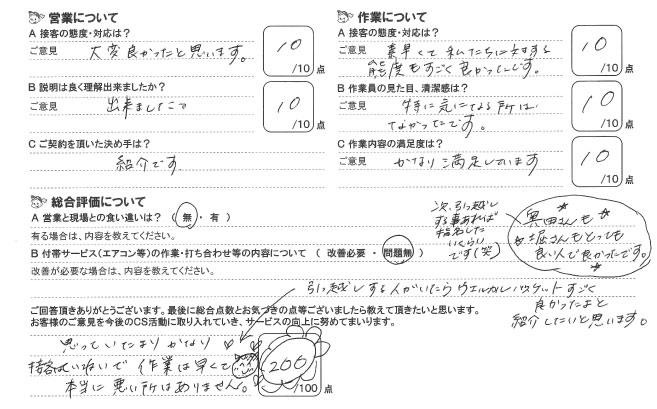 営業について
A 接客の態度・対応は?
ご意見 大変良かったと思います。
10
/10 点
B 説明は良く理解出来ましたか?
ご意見 出来ました
10
/10 点
C ご契約を頂いた決め手は?
紹介です
作業について
A 接客の態度・対応は?
ご意見 素早くて私たちに対する
態度もすごく良かったです。
10
/10 点
B 作業員の見た目、清潔感は?
ご意見 特に気になる所は
なかったです。
10
/10 点
C 作業内容の満足度は?
ご意見 かなり満足しています
10
/10 点
総合評価について
A 営業と現場との食い違いは? ( 無 ・ 有 )
有る場合は、内容を教えてください。
B 付帯サービス(エアコン等)の作業・打ち合わせ等の内容について ( 改善必要 ・ 問題無 )
改善が必要な場合は、内容を教えてください。
次、引っ越し
する事あれば
指名した
いくらい
です(笑)
奥田さんも
堀さんもとっても
良い人で良かったです。
引っ越しする人がいたらウェルカムバスケットすごく
良かったよと
紹介したいと思います。
ご回答頂きありがとうございます。最後に総合点数とお気づきの点等ございましたら教えて頂きたいと思います。
お客様のご意見を今後のCS活動に取り入れていき、サービスの向上に努めてまいります。
思っていたよりかなり
接客はていねいで 作業は早くて
本当に悪い所はありません。
200
/100 点